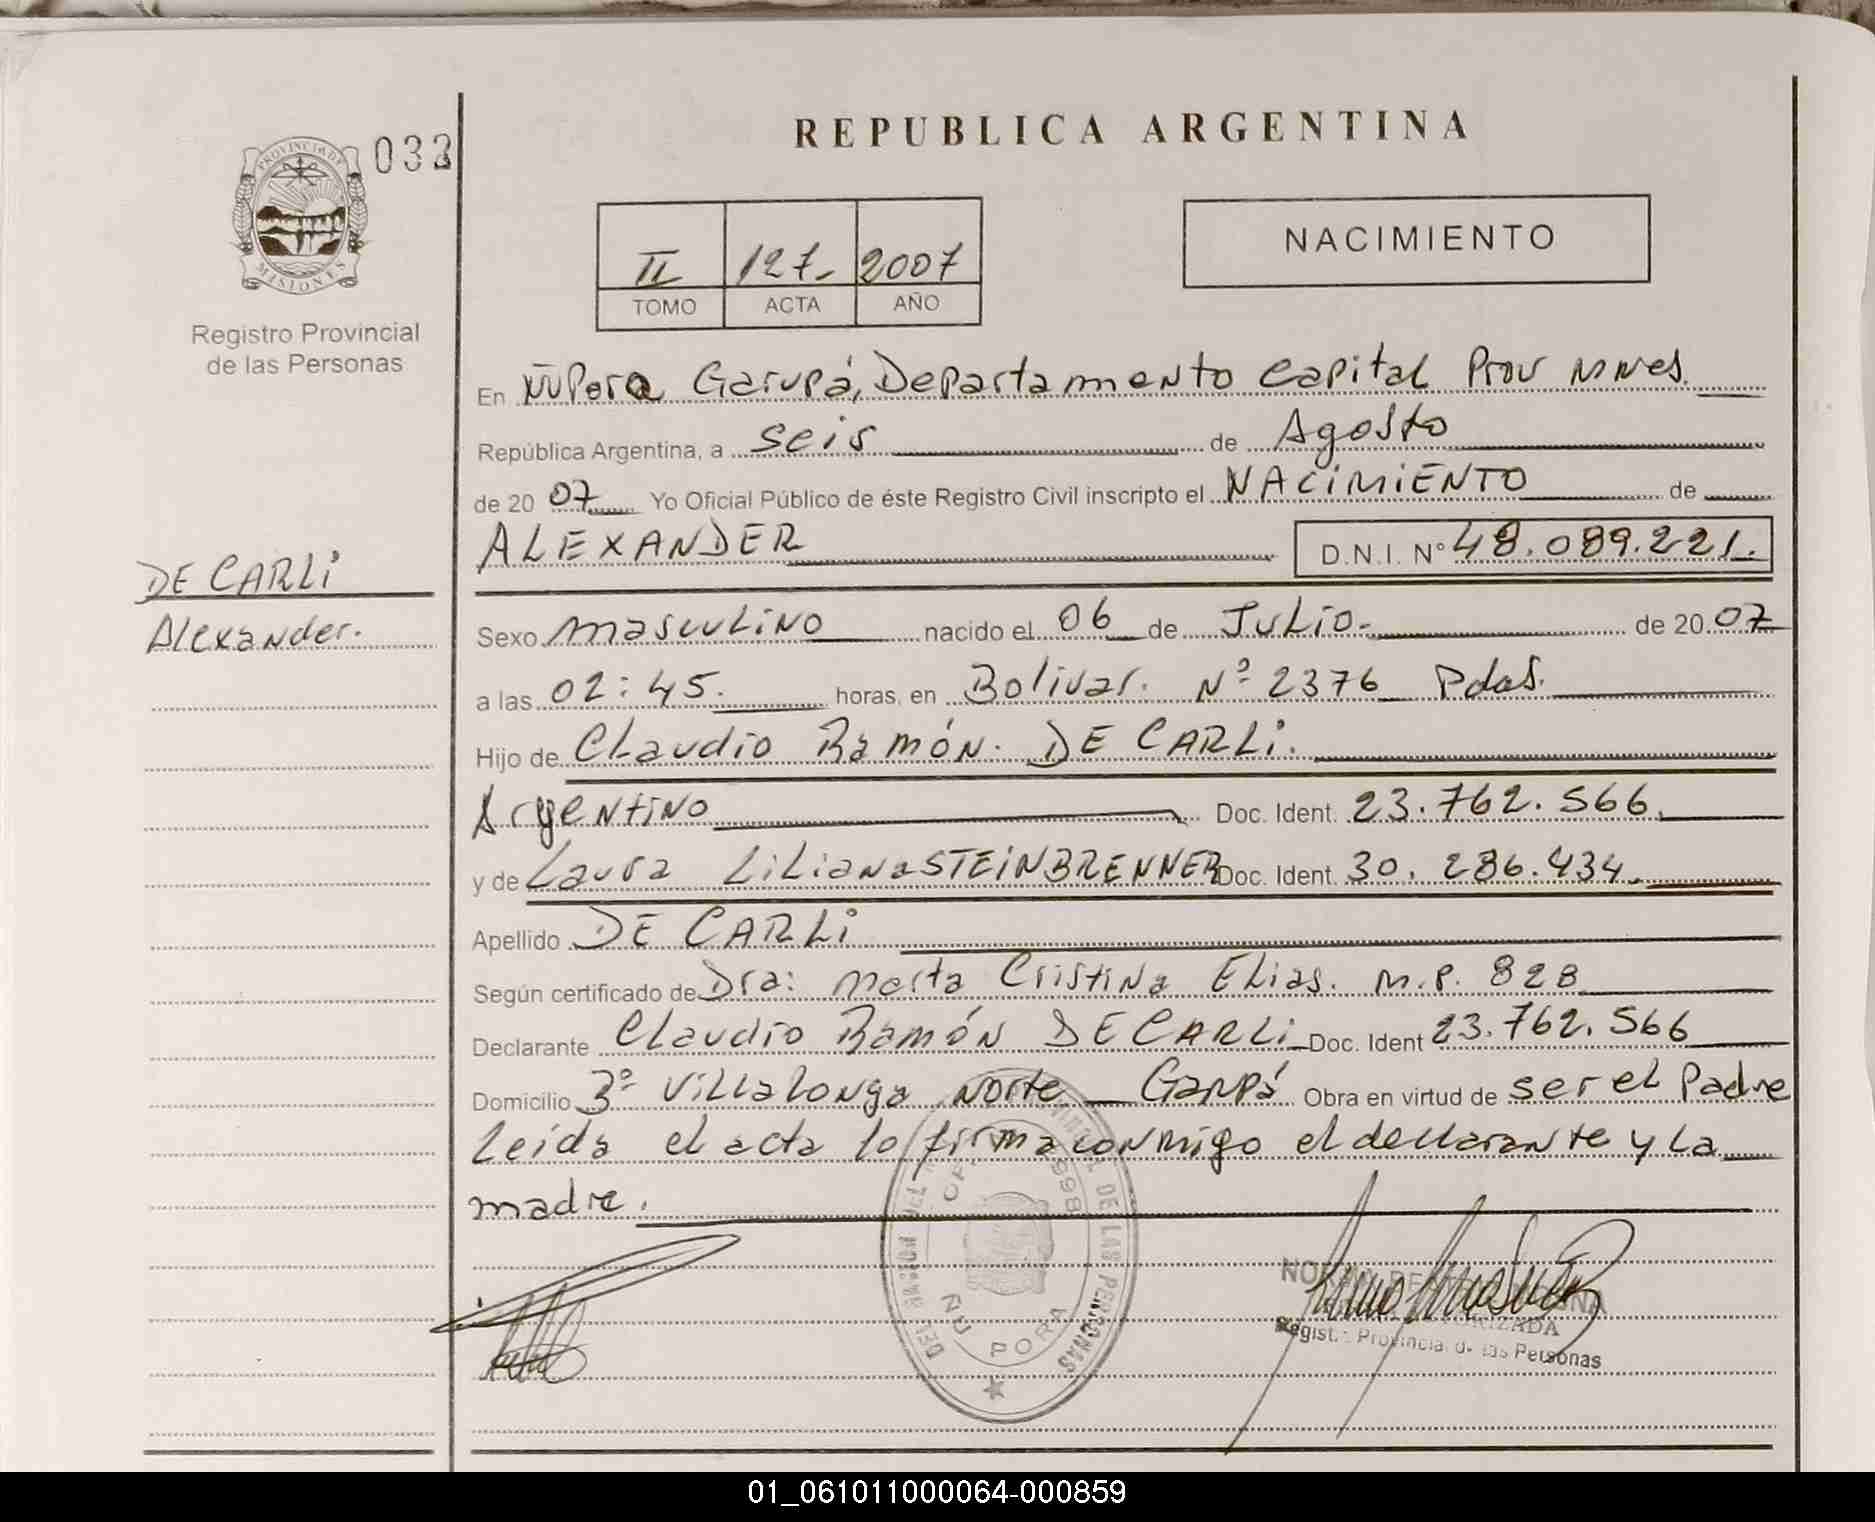 REPUBLICA ARGENTINA
033
PROVINCIA DE
MISIONES
Registro Provincial
de las Personas
II 127- 2007
TOMO ACTA AÑO
NACIMIENTO
En Ñu Pora Garupá, Departamento Capital Prov Mnes.
República Argentina, a seis de Agosto
de 20 07 Yo Oficial Público de éste Registro Civil inscripto el NACIMIENTO de
ALEXANDER D.N.I. Nº 48.089.221.
DE CARLI
Alexander.
Sexo masculino nacido el 06 de Julio- de 20 07
a las 02:45. horas, en Bolivar. Nº 2376 Pdas.
Hijo de Claudio Ramón. DE CARLI.
Argentino Doc. Ident. 23.762.566.
y de Laura Liliana STEINBRENNER Doc. Ident. 30.286.434.
Apellido DE CARLI
Según certificado de Dra: Marta Cristina Elias. M.P. 828
Declarante Claudio Ramón DE CARLI Doc. Ident 23.762.566
Domicilio Bº Villalonga Norte Garupá Obra en virtud de ser el Padre
Leida el acta lo firma conmigo el declarante y La
madre.
DE LAS PERSONAS
ÑU PORA
AUTORIZADA
Regist. Provincial de las Personas
01_061011000064-000859